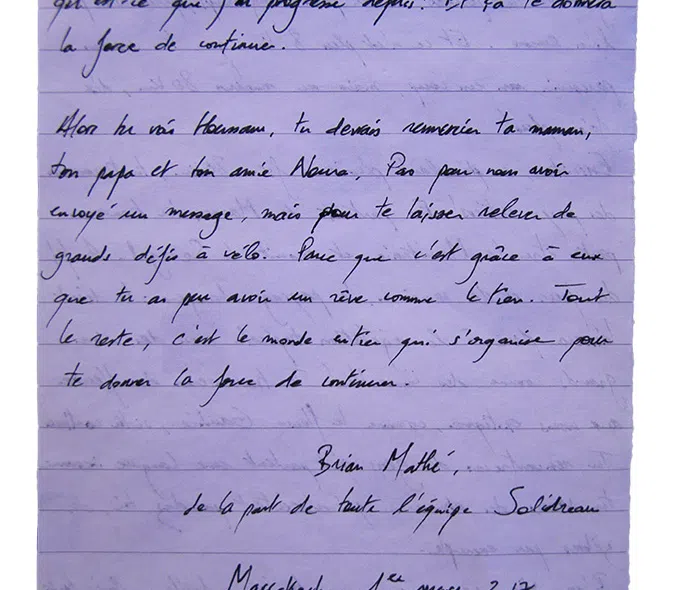 qui est-ce que j'ai progressé depuis. Et ça te donnera
la force de continuer.
Alors tu vois Houssam, tu devrais remercier ta maman,
ton papa et ton amie Noura. Pas pour nous avoir
envoyé un message, mais pour te laisser relever de
grands défis à vélo. Parce que c'est grâce à eux
que tu as peu avoir un rêve comme le tien. Tout
le reste, c'est le monde entier qui s'organise pour
te donner la force de continuer.
Brian Mathé,
de la part de toute l'équipe Solidream
Marrakech 1er mars